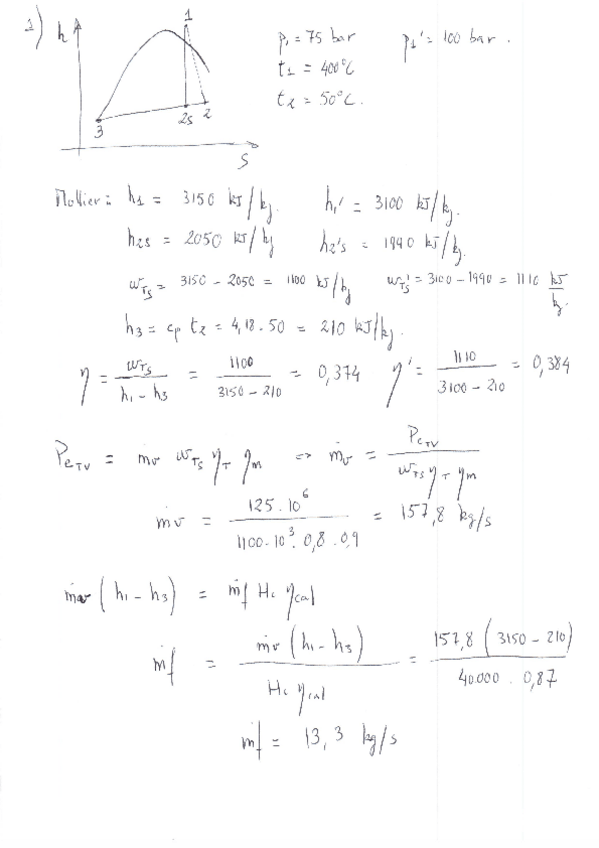 1) h
1
p₁ = 75 bar p₁' = 100 bar.
t₁ = 400°C
t₂ = 50°C.
3 2s 2
S
Mollier: h₁ = 3150 kJ/kg. h₁' = 3100 kJ/kg.
h₂s = 2050 kJ/kg h₂'s = 1990 kJ/kg.
w_Ts = 3150 - 2050 = 1100 kJ/kg w_Ts' = 3100 - 1990 = 1110 kJ/kg.
h₃ = cp t₂ = 4,18 . 50 = 210 kJ/kg.
η = w_Ts / (h₁ - h₃) = 1100 / (3150 - 210) = 0,374 η' = 1110 / (3100 - 210) = 0,384
Pe_TV = ṁv w_Ts η_T η_m => ṁv = Pe_TV / (w_Ts η_T η_m)
ṁv = 125.10⁶ / (1100.10³. 0,8 . 0,9) = 157,8 kg/s
ṁv (h₁ - h₃) = ṁf Hi η_cal
ṁf = ṁv (h₁ - h₃) / (Hi η_cal) = 157,8 (3150 - 210) / (40.000 . 0,87)
ṁf = 13,3 kg/s